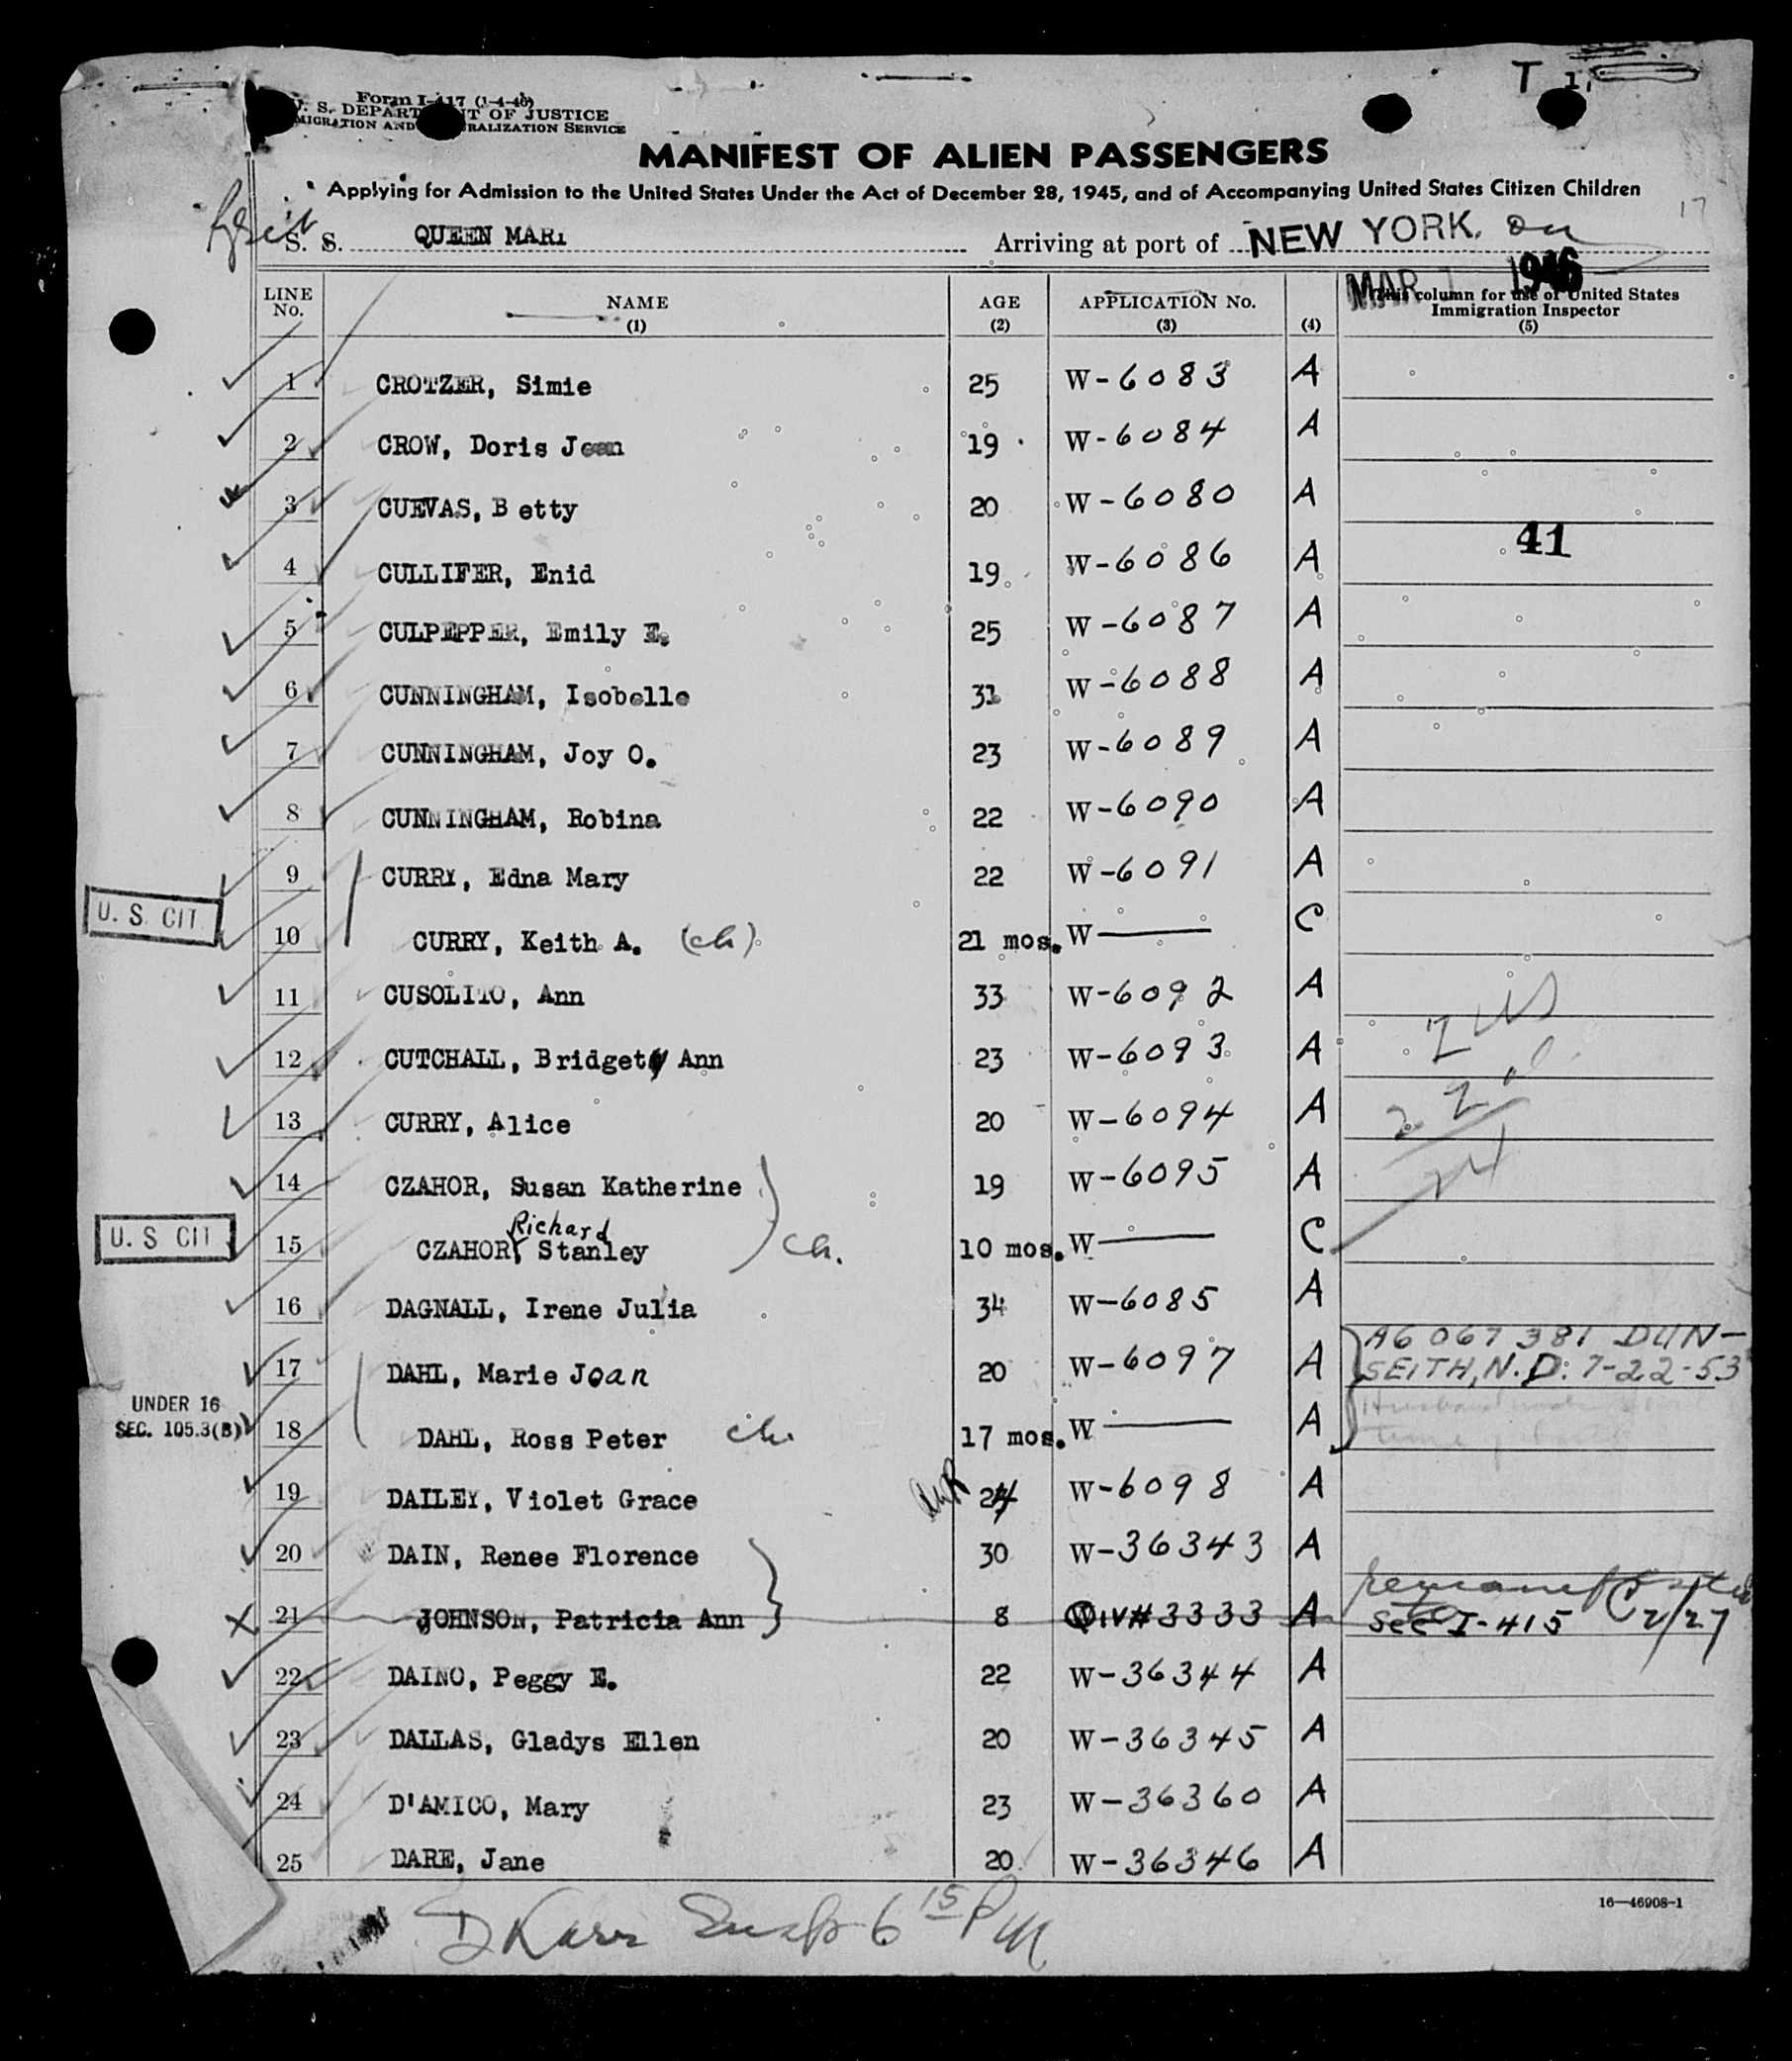 T 1.
Form I-417 (1-4-46)
U. S. DEPARTMENT OF JUSTICE
IMMIGRATION AND NATURALIZATION SERVICE
MANIFEST OF ALIEN PASSENGERS
Applying for Admission to the United States Under the Act of December 28, 1945, and of Accompanying United States Citizen Children
17
S. S. QUEEN MARY Arriving at port of NEW YORK. on
MAR 1 1946
LINE No. NAME (1) AGE (2) APPLICATION No. (3) (4) This column for use of United States Immigration Inspector (5)
1 CROTZER, Simie 25 W-6083 A
2 CROW, Doris Jean 19 W-6084 A
3 CUEVAS, B etty 20 W-6080 A
41
4 CULLIFER, Enid 19 W-6086 A
5 CULPEPPER, Emily E. 25 W-6087 A
6 CUNNINGHAM, Isobelle 31 W-6088 A
7 CUNNINGHAM, Joy O. 23 W-6089 A
8 CUNNINGHAM, Robina 22 W-6090 A
9 CURRY, Edna Mary 22 W-6091 A
U. S. CIT 10 CURRY, Keith A. (ch) 21 mos. W— C
11 CUSOLITO, Ann 33 W-6092 A
2 US
12 CUTCHALL, Bridget Ann 23 W-6093 A
22 al.
13 CURRY, Alice 20 W-6094 A
24
14 CZAHOR, Susan Katherine 19 W-6095 A
Richard
U. S CIT 15 CZAHOR, Stanley ch. 10 mos. W— C
16 DAGNALL, Irene Julia 34 W-6085 A
A6 067 381 DUN-
17 DAHL, Marie Joan 20 W-6097 A SEITH, N.D: 7-22-53
UNDER 16
SEC. 105.3(B) 18 DAHL, Ross Peter ch. 17 mos. W— A
Husband
time
19 DAILEY, Violet Grace 24 W-6098 A
20 DAIN, Renee Florence 30 W-36343 A
21 JOHNSON, Patricia Ann 8 QIV#3333 A See I-415 2/27
22 DAINO, Peggy E. 22 W-36344 A
23 DALLAS, Gladys Ellen 20 W-36345 A
24 D'AMICO, Mary 23 W-36360 A
25 DARE, Jane 20 W-36346 A
16—46908-1
D Karr Insp 6 15 PM